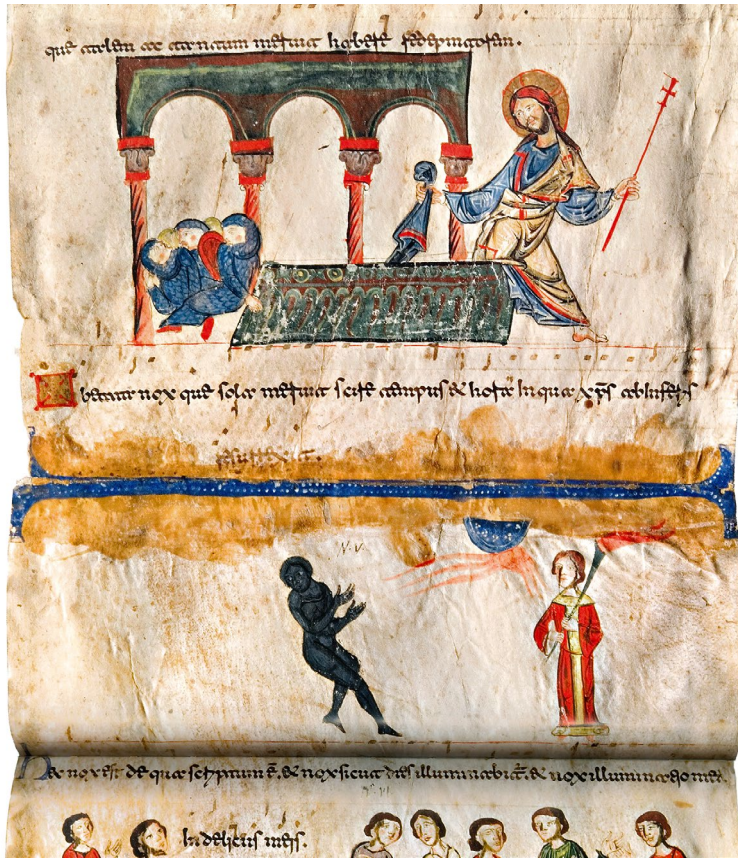 que talem ac tantum meruit habere redemptorem.
O beata nox que sola meruit scire tempus & horā In qua xp̄s ab inferis
resurrexit.
Hec nox est de qua scriptum ē. & nox sicut dies illuminabit̄. & nox illuminatio mea
In deliciis meis.